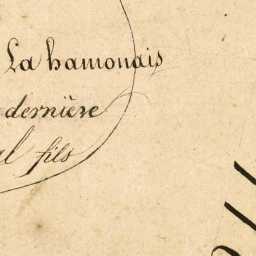 La hamonais
dernière
fils